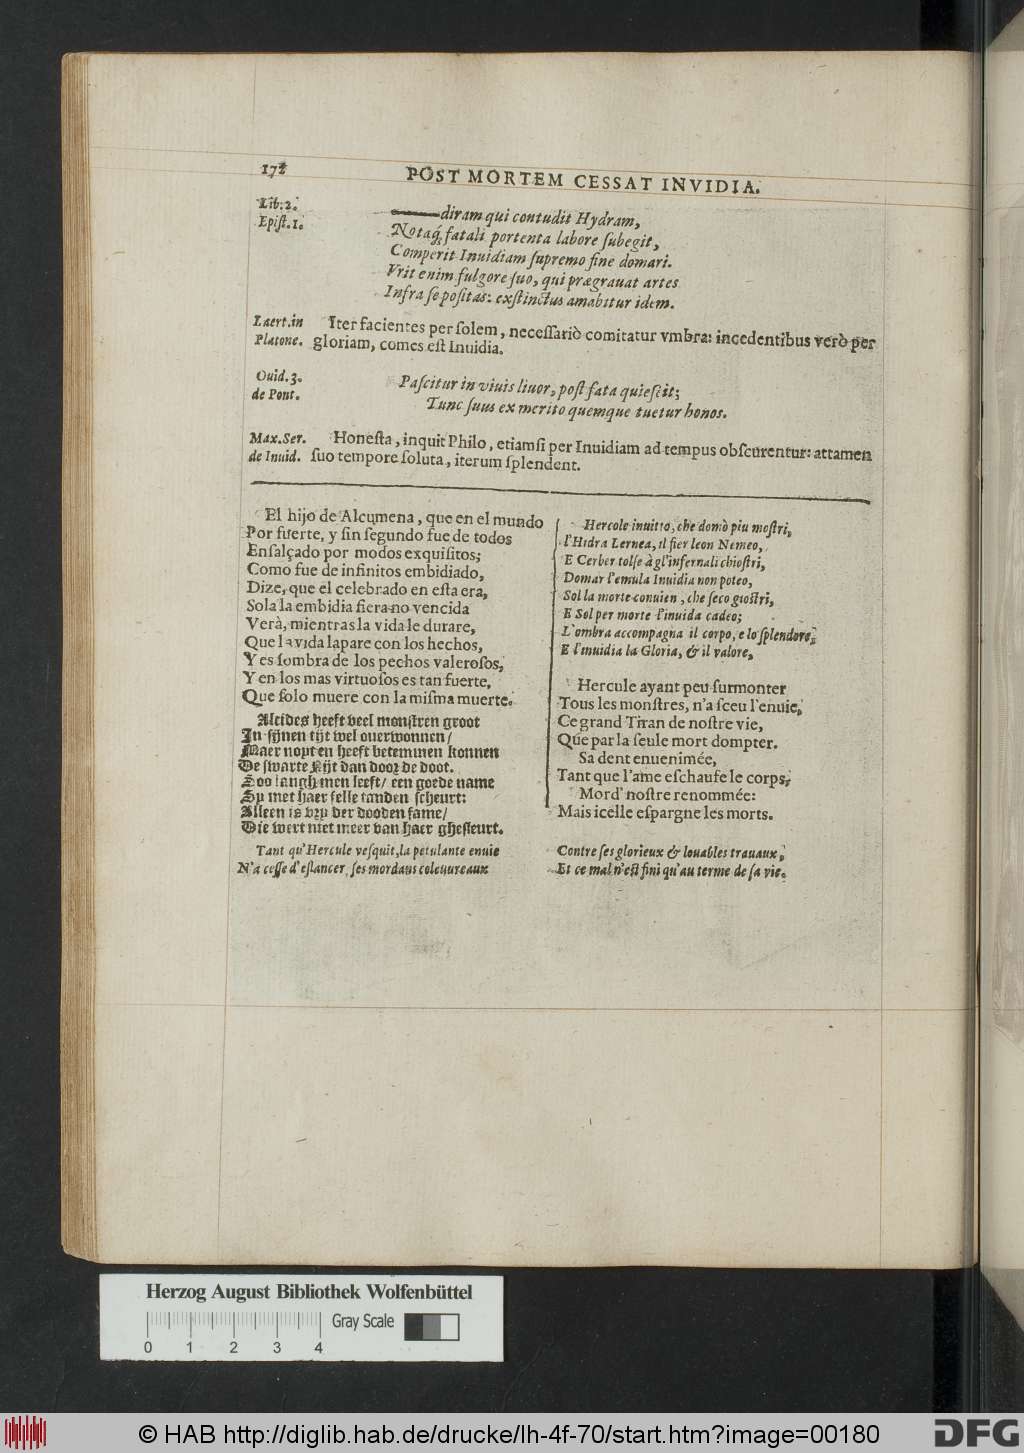 172
POST MORTEM CESSAT INVIDIA.
Lib. 2.
Epiſt. 1.
diram qui contudit Hydram,
Notaq́; fatali portenta labore ſubegit,
Comperit Inuidiam ſupremo fine domari.
Vrit enim fulgore ſuo, qui prægrauat artes
Infra ſe poſitas: exſtinctus amabitur idem.
Laert. in
Platone.
Iter facientes per ſolem, neceſſariò comitatur vmbra: incedentibus verò per
gloriam, comes eſt Inuidia.
Ouid. 3.
de Pont.
Paſcitur in viuis liuor, poſt fata quieſcit;
Tunc ſuus ex merito quemque tuetur honos.
Max. Ser.
de Inuid.
Honeſta, inquit Philo, etiamſi per Inuidiam ad tempus obſcurentur: attamen
ſuo tempore ſoluta, iterum ſplendent.
El hijo de Alcumena, que en el mundo
Por fuerte, y ſin ſegundo fue de todos
Enſalçado por modos exquiſitos;
Como fue de infinitos embidiado,
Dize, que el celebrado en eſta era,
Sola la embidia fiera no vencida
Verà, mientras la vida le durare,
Que la vida lapare con los hechos,
Y es ſombra de los pechos valeroſos,
Y en los mas virtuoſos es tan fuerte,
Que ſolo muere con la miſma muerte.
Alcides heeft veel monſtren groot
In ſijnen tijt wel ouerwonnen/
Maer noyt en heeft betemmen konnen
De ſwarte Nijt dan door de doot.
Soo langh men leeft/ een goede name
Sy met haer felle tanden ſcheurt:
Alleen is vry der dooden fame/
Die wert niet meer van haer gheſleurt.
Tant qu'Hercule veſquit, la petulante enuie
N'a ceſſe d'eſlancer, ſes mordans coleuureaux
Hercole inuitto, che domò piu moſtri,
l'Hidra Lernea, il fier leon Nemeo,
E Cerber tolſe à gl'infernali chioſtri,
Domar l'emula Inuidia non poteo,
Sol la morte conuien, che ſeco gioſtri,
E Sol per morte l'inuida cadeo;
L'ombra accompagna il corpo, e lo ſplendore,
E l'inuidia la Gloria, & il valore,
Hercule ayant peu ſurmonter
Tous les monſtres, n'a ſceu l'enuie,
Ce grand Tiran de noſtre vie,
Que par la ſeule mort dompter.
Sa dent enuenimée,
Tant que l'ame eſchaufe le corps,
Mord noſtre renommée:
Mais icelle eſpargne les morts.
Contre ſes glorieux & louables trauaux,
Et ce mal n'eſt fini qu'au terme de ſa vie.
Herzog August Bibliothek Wolfenbüttel
Gray Scale
0 1 2 3 4
© HAB http://diglib.hab.de/drucke/lh-4f-70/start.htm?image=00180
DFG